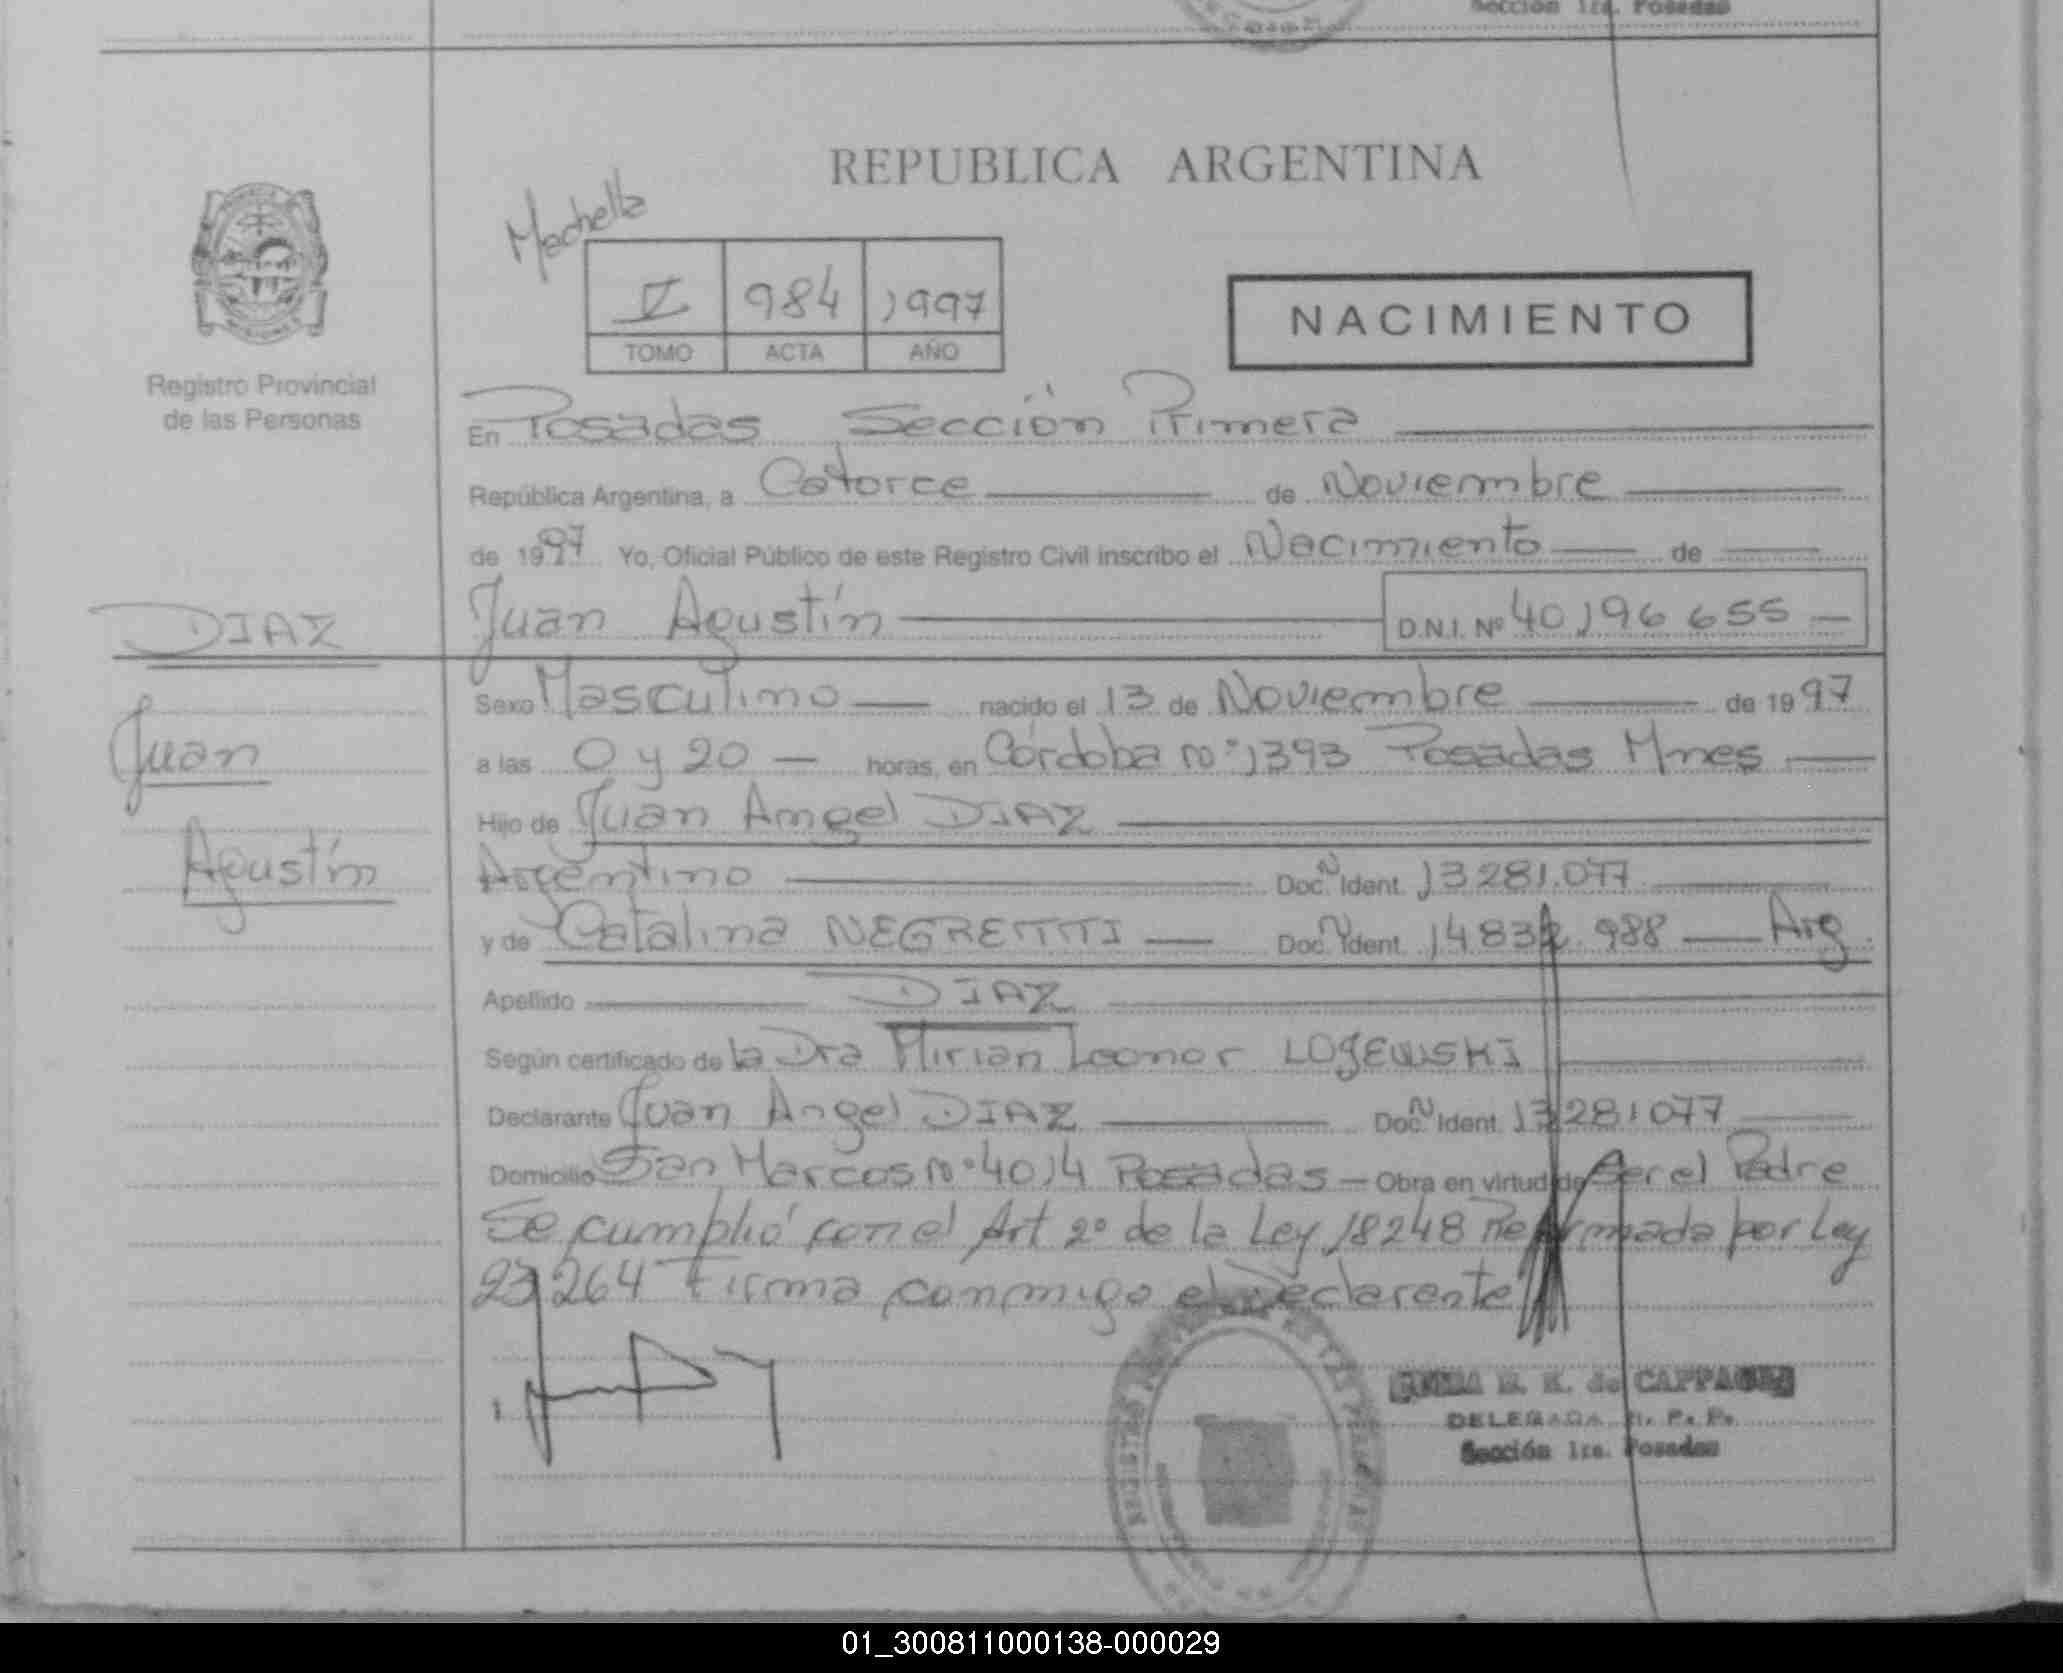 Sección 1ra. Posadas
REPUBLICA ARGENTINA
Machella
V 984 1997
TOMO ACTA AÑO
NACIMIENTO
Registro Provincial
de las Personas
En Posadas Sección Primera
República Argentina, a Catorce de Noviembre
de 1997 Yo, Oficial Público de este Registro Civil inscribo el Nacimiento de
DIAZ
Juan Agustín D.N.I. Nº 40.196 655
Sexo Masculino nacido el 13 de Noviembre de 1997
Juan
a las 0 y 20 horas, en Córdoba nº 1393 Posadas Mnes
Hijo de Juan Angel DIAZ
Agustín
Argentino Doc. N Ident. 13281.077
y de Catalina NEGRETTI Doc. N Ident. 14832.988 Arg.
Apellido DIAZ
Según certificado de la Dra Mirian Leonor LOJEWSKI
Declarante Juan Angel DIAZ Doc. N Ident. 13281077
Domicilio San Marcos Nº 4014 Posadas - Obra en virtud de Ser el Padre
Se cumplió con el Art 2º de la Ley 18248 Reformada por Ley
23264 Firma conmigo el Declarante
de CAPPAGLI
DELEGADA R. P. P.
Sección 1ra. Posadas
01_300811000138-000029